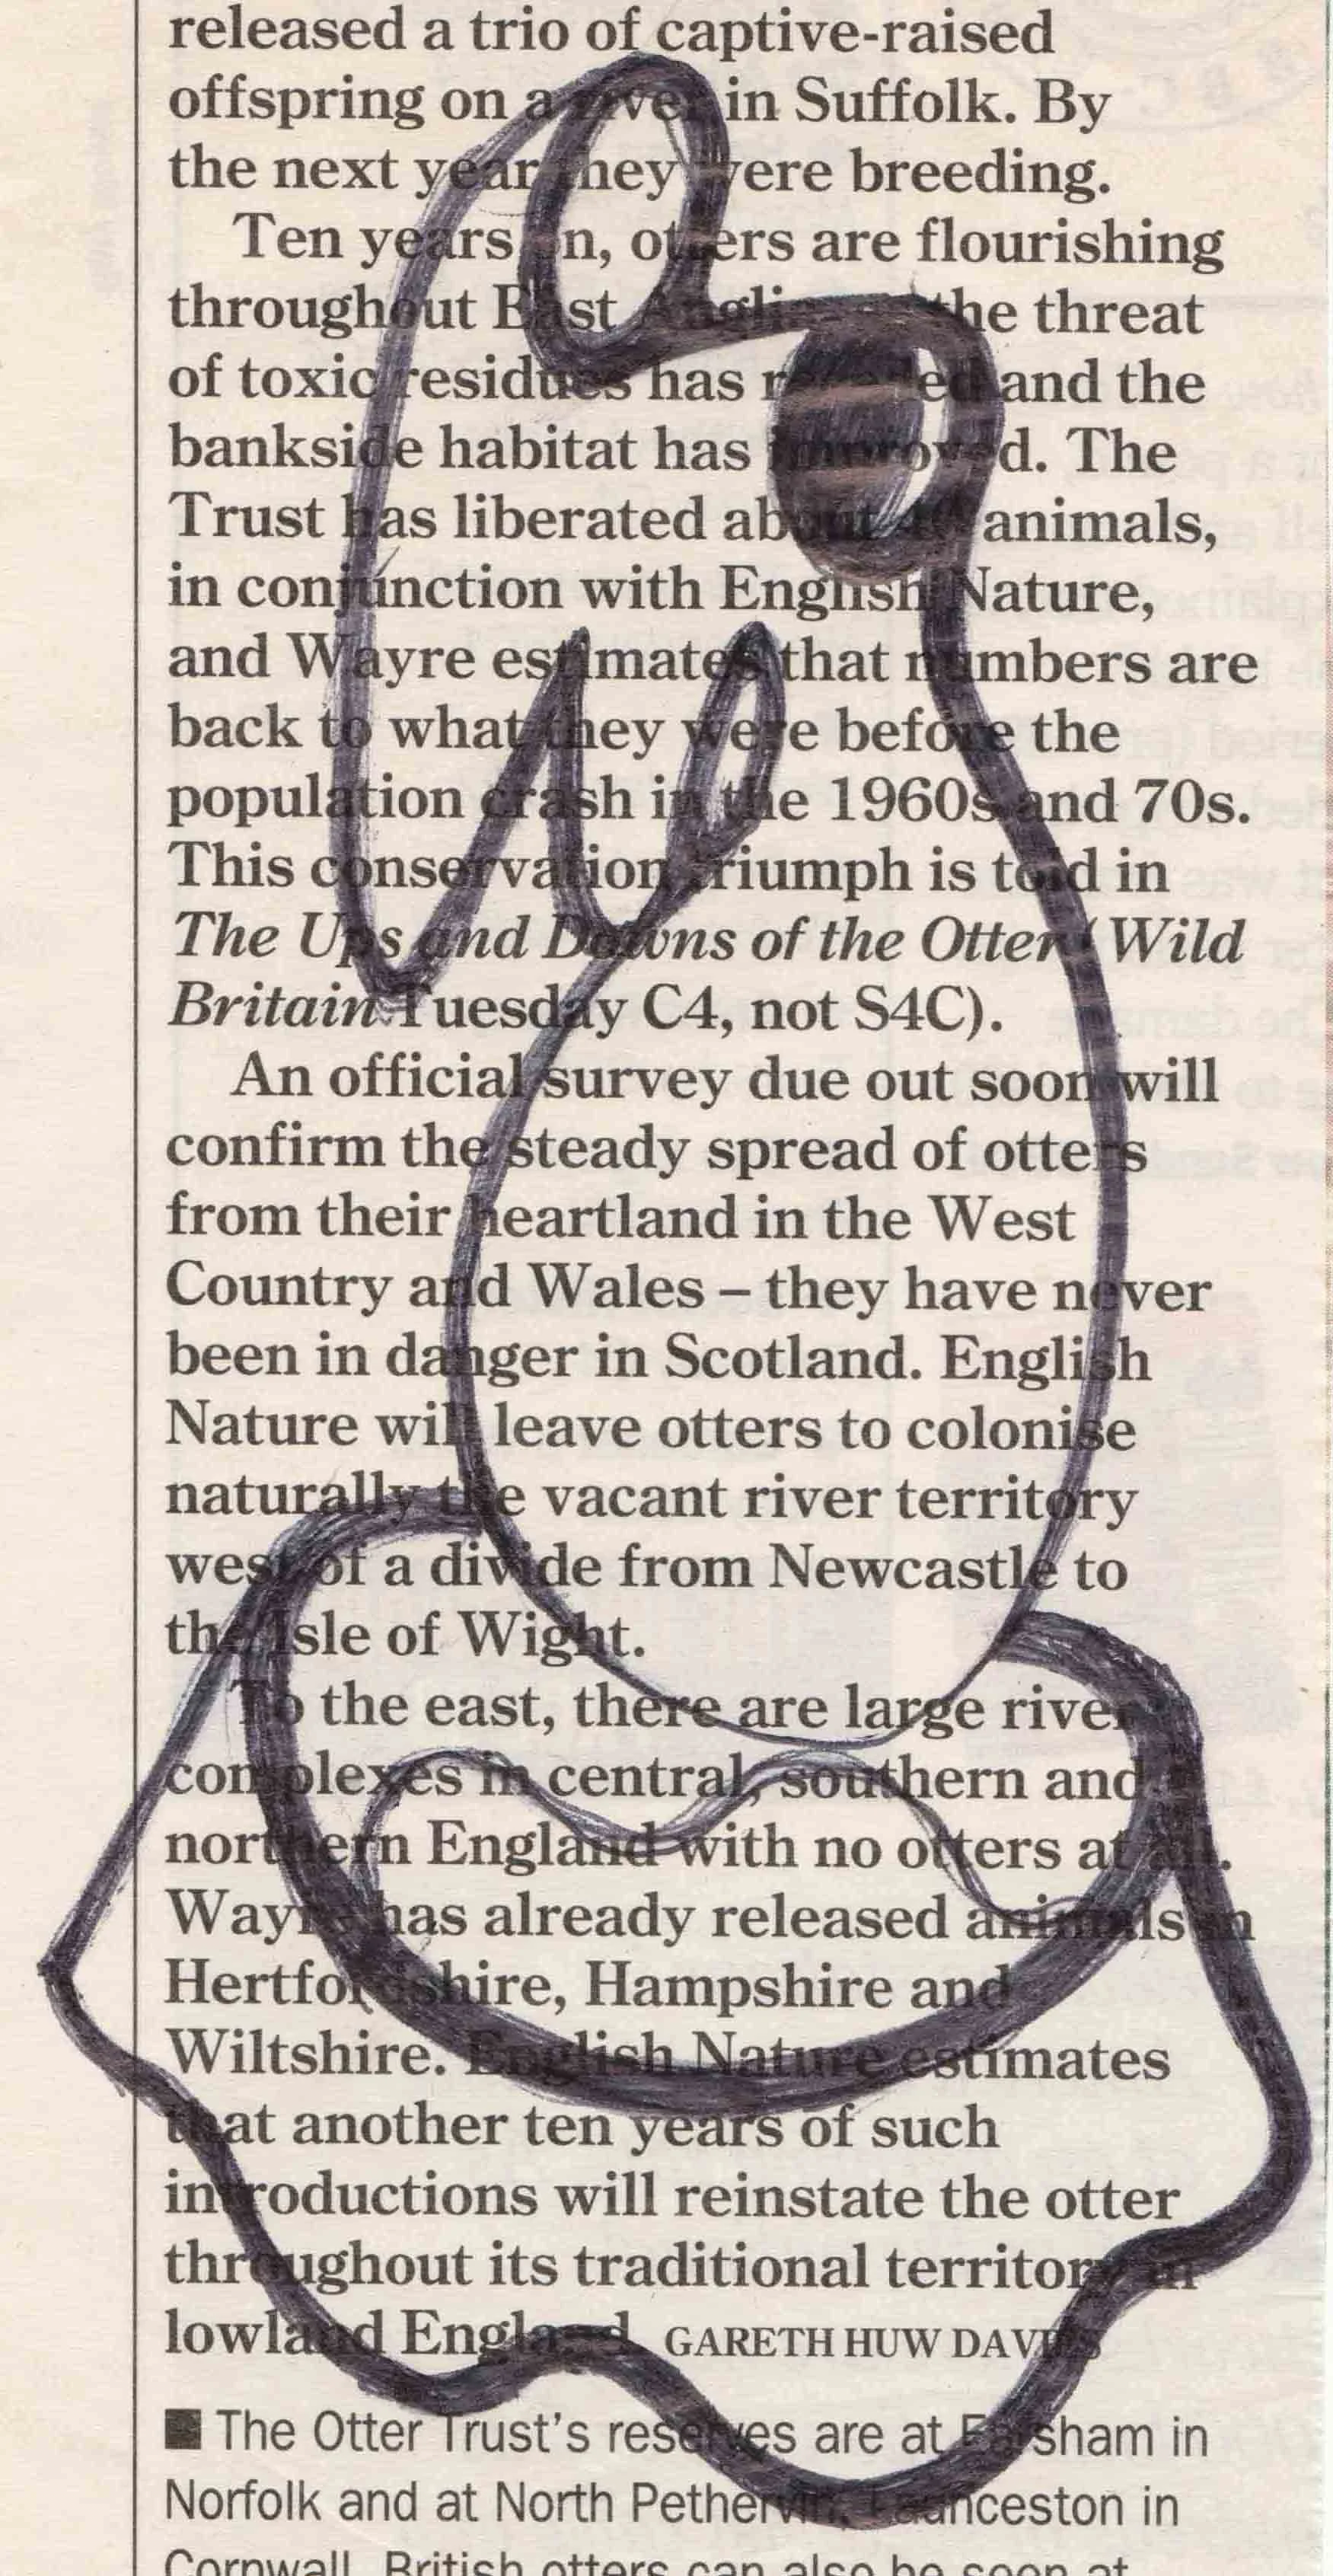 released a trio of captive-raised
offspring on a river in Suffolk. By
the next year they were breeding.
Ten years on, otters are flourishing
throughout East Anglia as the threat
of toxic residues has receded and the
bankside habitat has improved. The
Trust has liberated about 40 animals,
in conjunction with English Nature,
and Wayre estimates that numbers are
back to what they were before the
population crash in the 1960s and 70s.
This conservation triumph is told in
The Ups and Downs of the Otter (Wild
Britain Tuesday C4, not S4C).
An official survey due out soon will
confirm the steady spread of otters
from their heartland in the West
Country and Wales – they have never
been in danger in Scotland. English
Nature will leave otters to colonise
naturally the vacant river territory
west of a divide from Newcastle to
the Isle of Wight.
To the east, there are large river
complexes in central, southern and
northern England with no otters at all.
Wayre has already released animals in
Hertfordshire, Hampshire and
Wiltshire. English Nature estimates
that another ten years of such
introductions will reinstate the otter
throughout its traditional territory in
lowland England. GARETH HUW DAVIES
■ The Otter Trust's reserves are at Earsham in
Norfolk and at North Petherwin, Launceston in
Cornwall. British otters can also be seen at